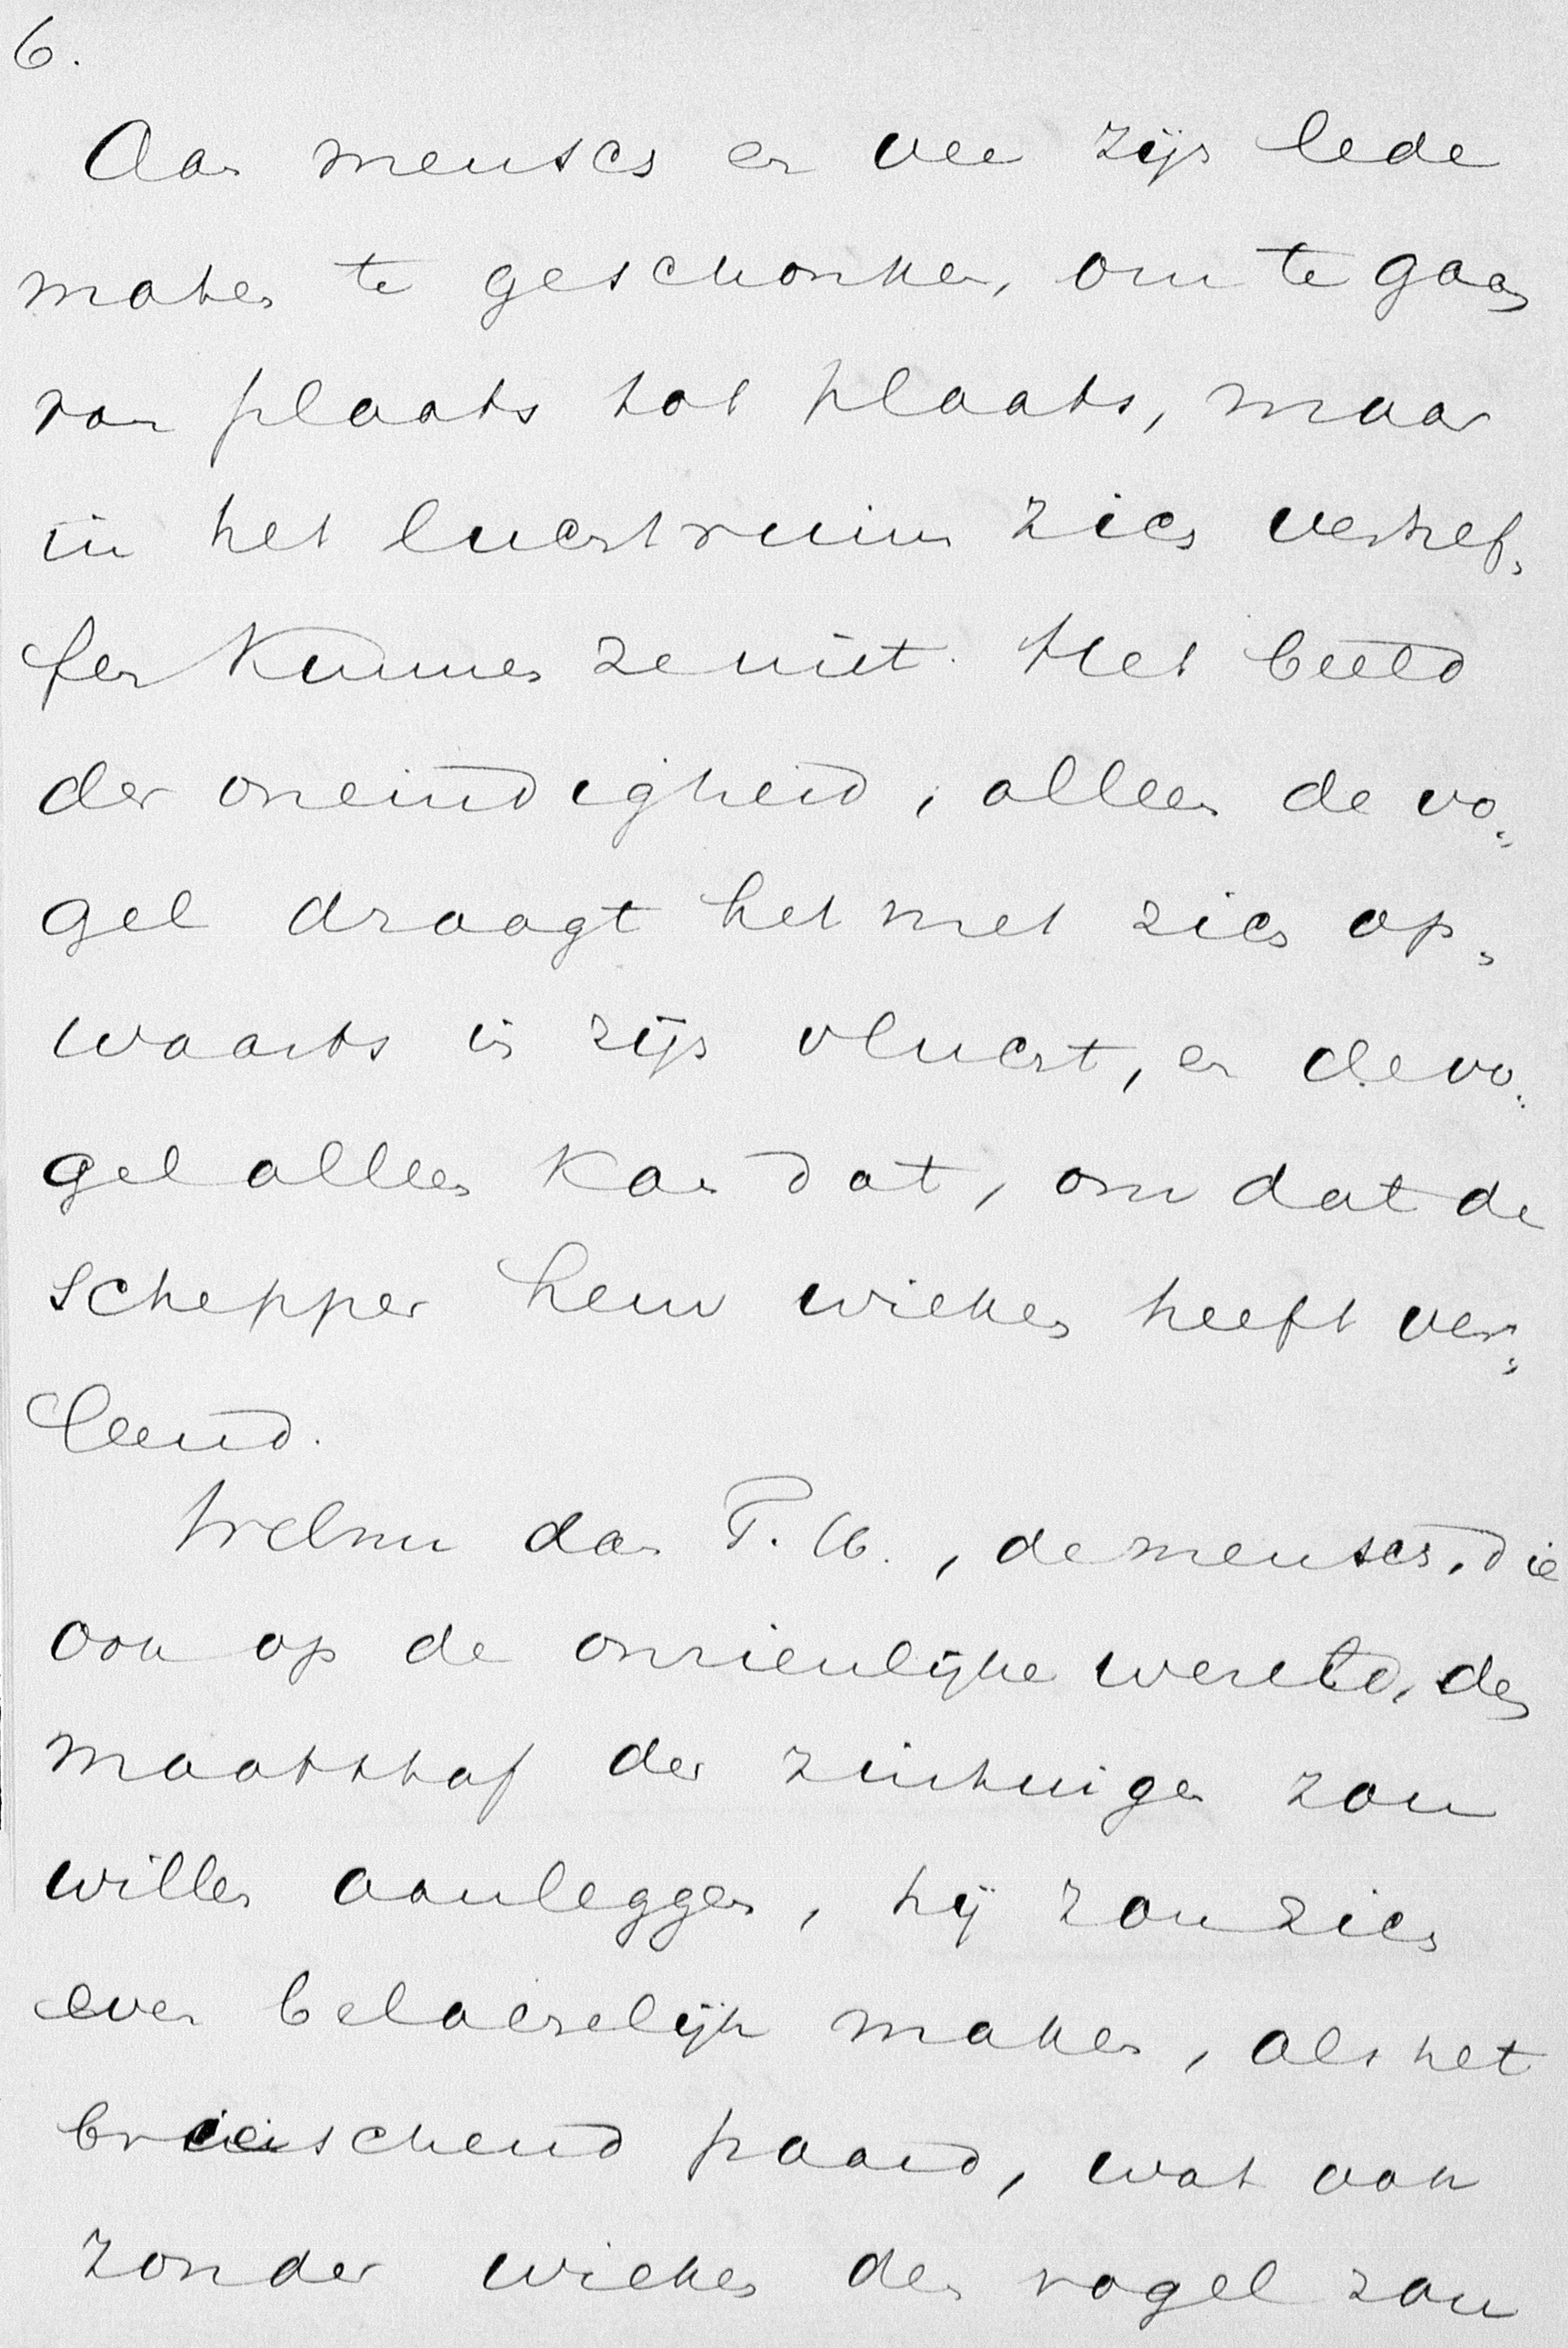 6.
Aan mensch en vee zijn lede
maten te geschonken, om te gaan
van plaats tot plaats, maar
in het luchtruim zich verhef„
fen kunnen ze niet. Het beeld
der oneindigheid, alleen de vo„
gel draagt het met zich op„
waarts in zijn vlucht, en de vo„
gel alleen kan dat, omdat de
schepper hem wieken heeft ver„
leend.
Welnu dan T. U., de mensch, die
ook op de onzienlijke wereld, den
maatstaf der zintuigen zou
willen aanleggen, hij zou zich
even belachelijk maken, als het
brieschend paard, wat ook
zonder wieken den vogel zou